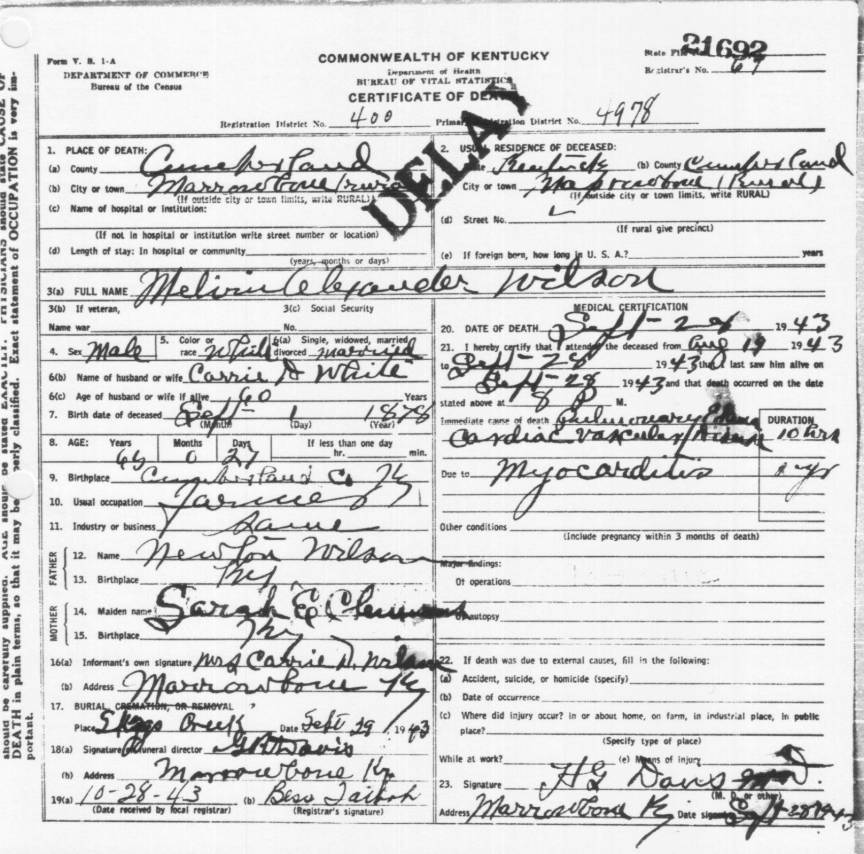 Form V. S. 1-A
DEPARTMENT OF COMMERCE
Bureau of the Census
COMMONWEALTH OF KENTUCKY
Department of Health
BUREAU OF VITAL STATISTICS
CERTIFICATE OF DEATH
State File 21692
Registrar's No. 67
Registration District No. 400 Primary Registration District No. 4978
DELAY
1. PLACE OF DEATH:
(a) County Cumberland
(b) City or town Marrowbone (rural)
(If outside city or town limits, write RURAL)
(c) Name of hospital or institution:
(If not in hospital or institution write street number or location)
(d) Length of stay: In hospital or community
(years, months or days)
2. USUAL RESIDENCE OF DECEASED:
Kentucky (b) County Cumberland
City or town Marrowbone (Rural)
(If outside city or town limits, write RURAL)
(d) Street No.
(If rural give precinct)
(e) If foreign born, how long in U. S. A.? years
3(a) FULL NAME Melvin Alexander Wilson
3(b) If veteran, 3(c) Social Security
Name war No.
4. Sex Male 5. Color or race White 6(a) Single, widowed, married, divorced married
6(b) Name of husband or wife Carrie D White
6(c) Age of husband or wife if alive 60 Years
7. Birth date of deceased Sept 1 1878
(Month) (Day) (Year)
8. AGE: Years Months Days If less than one day
65 0 27 hr. min.
9. Birthplace Cumberland Co Ky
10. Usual occupation Farmer
11. Industry or business Same
FATHER
12. Name Newton Wilson
13. Birthplace Ky
MOTHER
14. Maiden name Sarah E Clemmons
15. Birthplace Ky
16(a) Informant's own signature Mrs Carrie D. Wilson
(b) Address Marrowbone Ky
17. BURIAL, CREMATION, OR REMOVAL
Place Skggs Creek Date Sept 29, 1943
18(a) Signature of funeral director G R Davis
(b) Address Marrowbone Ky
19(a) 10-28-43 (b) Bess
(Date received by local registrar) (Registrar's signature)
MEDICAL CERTIFICATION
20. DATE OF DEATH Sept-28 1943
21. I hereby certify that I attended the deceased from Aug 19 1943
to Sept-28 1943 that I last saw him alive on
Sept-28 1943 and that death occurred on the date
stated above at 8 P M.
Immediate cause of death Pulmonary Edema DURATION
Cardiac Vascular 10 hrs
Due to Myocarditis 2 yr
Other conditions
(Include pregnancy within 3 months of death)
Major findings:
Of operations
Of autopsy
22. If death was due to external causes, fill in the following:
(a) Accident, suicide, or homicide (specify)
(b) Date of occurrence
(c) Where did injury occur? in or about home, on farm, in industrial place, in public
place?
(Specify type of place)
While at work? (e) Means of injury
23. Signature H G Davis M.D.
(M. D. or other)
Address Marrowbone Ky Date signed Sept-28 1943
should be carefully supplied. AGE should be stated EXACTLY. PHYSICIANS should state CAUSE OF
DEATH in plain terms, so that it may be properly classified. Exact statement of OCCUPATION is very im-
portant.